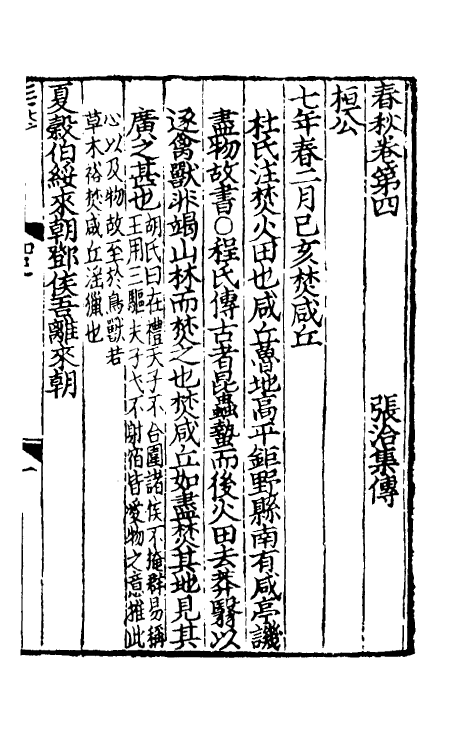 春秋卷第四　張洽集傳
桓公
七年春二月己亥焚咸丘
杜氏注焚火田也咸丘魯地高平鉅野縣南有咸亭譏
盡物故書○程氏傳古者昆蟲蟄而後火田去莽翳以
逐禽獸非竭山林而焚之也焚咸丘如盡焚其地見其
廣之甚也
胡氏曰在禮天子不合圍諸侯不掩群易稱
王用三驅夫子弋不射宿皆愛物之意推此
心以及物故至於鳥獸若
草木裕焚咸丘淫獵也
夏穀伯綏來朝鄧侯吾離來朝